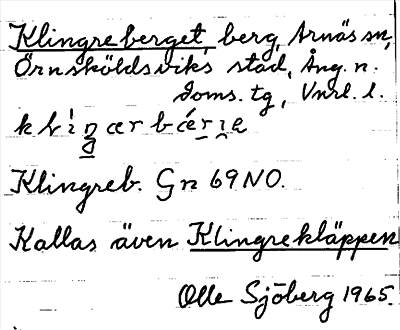 Klingreberget, berg, Arnäs sn,
Örnsköldsviks stad, Ång. n.
doms. tg, Vnrl. l.
Klingreb. Gn 69 NO.
Kallas även Klingrekläppen
Olle Sjöberg 1965.